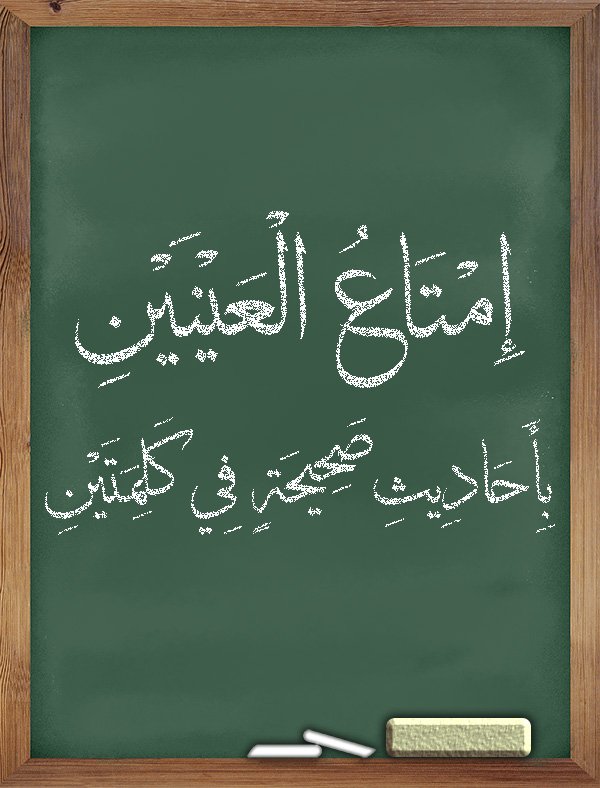 إِمْتَاعُ الْعَيْنَيْنِ
بِأَحَادِيثِ صَحِيحَةٍ فِي كَلِمَتَيْنِ